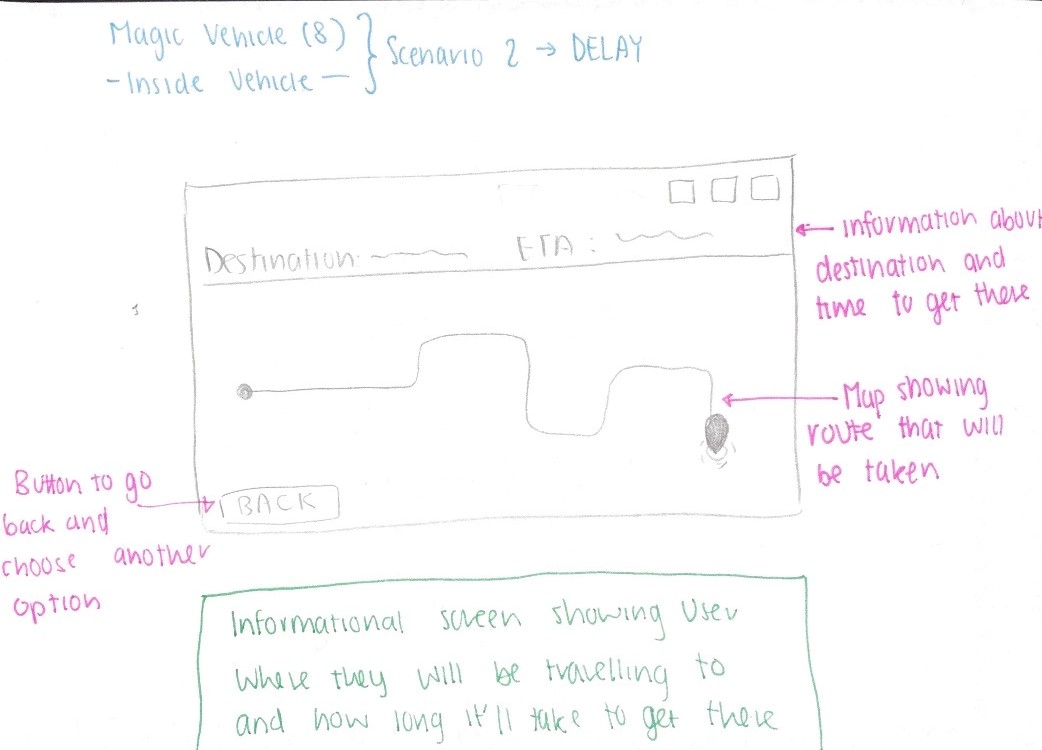 Magic Vehicle (8)
- Inside Vehicle -
Scenario 2 → DELAY
Destination: ETA :
← information about
destination and
time to get there
Map showing
route that will
be taken
Button to go
back and
choose another
option
BACK
Informational screen showing user
where they will be travelling to
and how long it'll take to get there